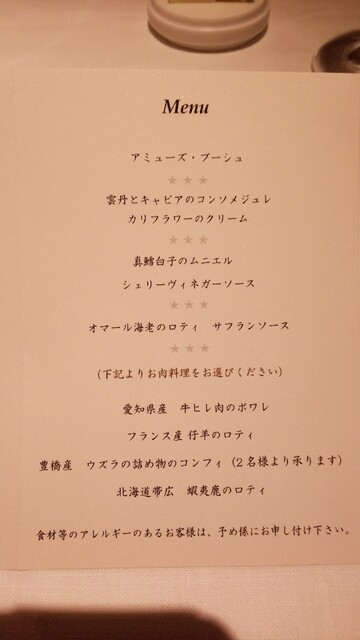 Menu
アミューズ・ブーシュ
★★★
雲丹とキャビアのコンソメジュレ
カリフラワーのクリーム
★★★
真鱈白子のムニエル
シェリーヴィネガーソース
★★★
オマール海老のロティ　サフランソース
★★★
（下記よりお肉料理をお選びください）
愛知県産　牛ヒレ肉のポワレ
フランス産 仔羊のロティ
豊橋産　ウズラの詰め物のコンフィ（2名様より承ります）
北海道帯広　蝦夷鹿のロティ
食材等のアレルギーのあるお客様は、予め係にお申し付け下さい。